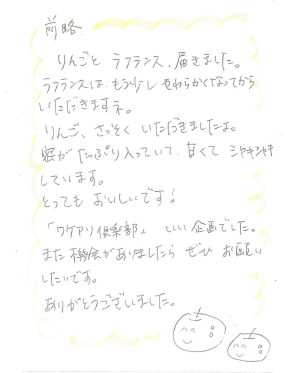 前略
りんごと ラフランス、届きました。
ラフランスは、もう少し やわらかくなってから
いただきますネ。
りんご、さっそく いただきましたよ。
密がたっぷり入っていて、甘くて シャキシャキ
しています。
とっても おいしいです！
「ワケアリ倶楽部」 いい企画でした。
また機会がありましたら ぜひ お願い
したいです。
ありがとうございました。